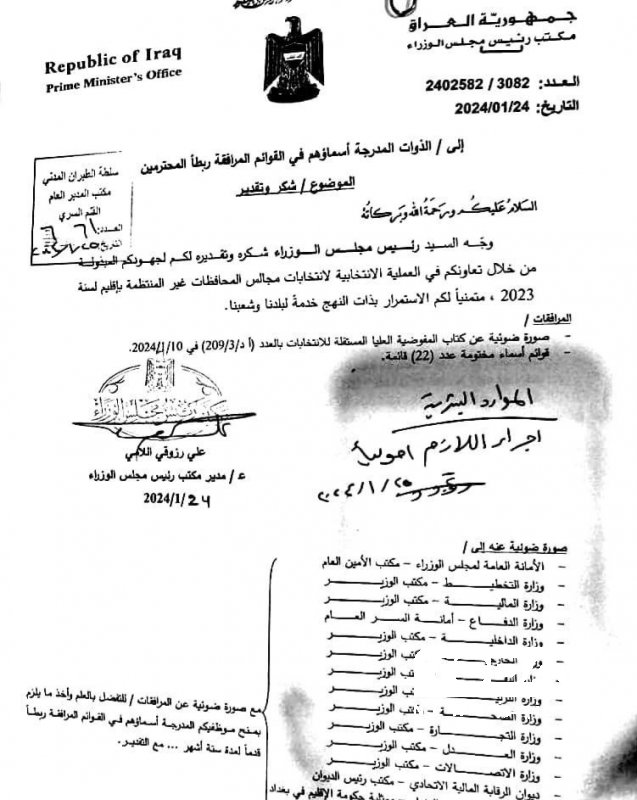 جمهورية العراق
مكتب رئيس مجلس الوزراء
Republic of Iraq
Prime Minister's Office
العـدد: 3082 / 2402582
التاريخ: 2024/01/24
إلى / الذوات المدرجة أسماؤهم في القوائم المرافقة ربطاً المحترمين
الموضوع / شكر وتقدير
سلطة الطيران المدني
مكتب المدير العام
القلم السري
العدد:
التاريخ
السلام عليكم ورحمة الله وبركاته
وجّه السيد رئيس مجلس الوزراء شكره وتقديره لكم لجهودكم المبذولة
من خلال تعاونكم في العملية الانتخابية لانتخابات مجالس المحافظات غير المنتظمة بإقليم لسنة
2023 ، متمنياً لكم الاستمرار بذات النهج خدمةً لبلدنا وشعبنا.
المرافقات /
- صورة ضوئية عن كتاب المفوضية العليا المستقلة للانتخابات بالعدد (أ د/209/3) في 2024/1/10.
- قوائم أسماء مختومة عدد (22) قائمة.
الموارد البشرية
اجراء اللازم اصولياً
٢٠٢٤/١/٢٥
علي رزوقي اللامي
ع/ مدير مكتب رئيس مجلس الوزراء
2024/1/24
صورة ضوئية عنه إلى /
- الأمانة العامة لمجلس الوزراء – مكتب الأمين العام
- وزارة التخطيط – مكتب الوزير
- وزارة المالية – مكتب الوزير
- وزارة الدفاع – أمانة السر العام
- وزارة الداخلية – مكتب الوزير
مكتب الوزير
الوزير
الوزير
- وزارة الصحة – مكتب الوزير
- وزارة التجارة – مكتب الوزير
- وزارة العدل – مكتب الوزير
- وزارة الاتصالات – مكتب الوزير
- ديوان الرقابة المالية الاتحادي – مكتب رئيس الديوان
ممثلية حكومة الإقليم في بغداد
مع صورة ضوئية عن المرافقات / للتفضل بالعلم وأخذ ما يلزم
بمنح موظفيكم المدرجة أسماؤهم في القوائم المرافقة ربطاً
قدماً لمدة سنة أشهر ... مع التقدير.